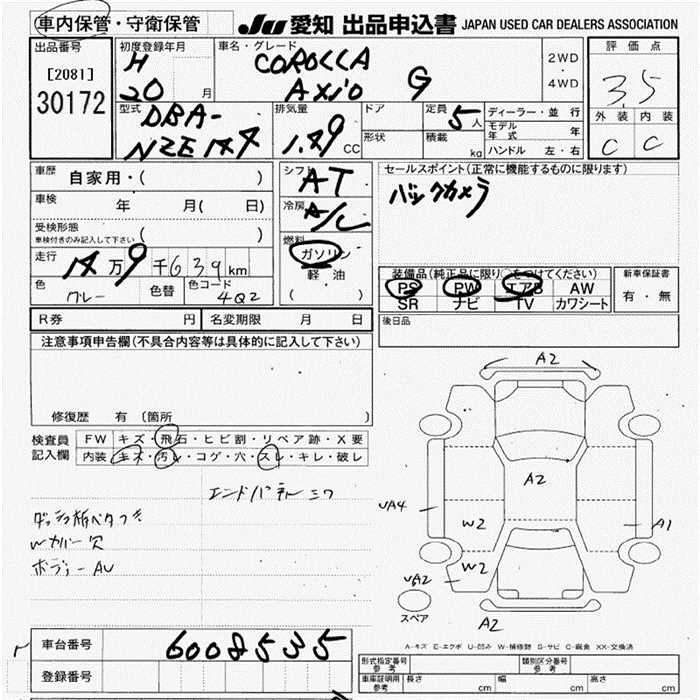 車内保管・守衛保管 JU 愛知 出品申込書 JAPAN USED CAR DEALERS ASSOCIATION
出品番号 初度登録年月 車名・グレード 2WD・4WD 評価点
[2081] H COROLLA 3.5
30172 20 月 AXIO G 外装 内装
型式 DBA- 排気量 ドア 定員 5人 ディーラー・並行 C C
NZE144 1.49 CC 形状 積載 kg モデル年式 年
ハンドル 左・右
車歴 自家用・( ) シフト AT セールスポイント(正常に機能するものに限ります)
車検 年 月( 日) 冷房 A/C バックカメラ
受検形態 ( )
車検付きのみ記入して下さい
燃料 ガソリン
走行 14万9千639km 軽・油
( )
色 グレー 色替 色コード 4Q2
装備品(純正品に限り○をつけてください) 新車保証書
PS PW エアB AW 有・無
SR ナビ TV カワシート
R券 円 名変期限 月 日 後日品
注意事項申告欄(不具合内容等は具体的に記入して下さい)
修復歴 有 (箇所 )
検査員記入欄 FW キズ・飛石・ヒビ割・リペア跡・X要
内装 キズ・汚レ・コゲ・穴・スレ・キレ・破レ
エンドパネルミワ
Wカバー欠
ボディー AU
A2
A2
UA4 W2 A1
W2
UA2
スペア
A2
A-キズ E-エクボ U-凹み W-補修跡 S-サビ C-腐食 XX-交換済
車台番号 6008535
登録番号
形式指定番号 参考 類別区分番号 参考
車庫証明用 参考 長さ cm 幅 cm 高さ cm